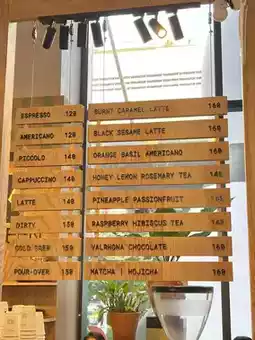 ESPRESSO 120
AMERICANO 120
PICCOLO 140
CAPPUCCINO 140
LATTE 140
DIRTY 150
COLD BREW 150
POUR-OVER 150
BURNT CARAMEL LATTE 160
BLACK SESAME LATTE 160
ORANGE BASIL AMERICANO 160
HONEY LEMON ROSEMARY TEA 140
PINEAPPLE PASSIONFRUIT
RASPBERRY HIBISCUS TEA
VALRHONA CHOCOLATE 160
MATCHA | HOJICHA 160